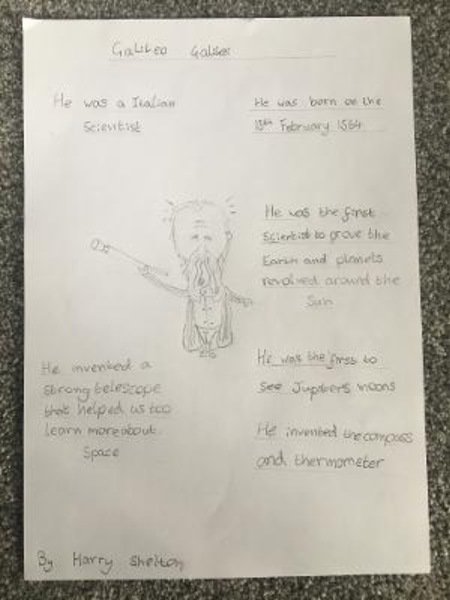 Galileo
He was a Italian
Scientist
He was born on the
15th February 1564
He was the first
Scientist to prove the
Earth and planets
revolved around the
Sun
He invented a
strong telescope
that helped us too
learn more about
Space
He was the first to
see Jupiters moons
He invented the compass
and thermometer
By Harry Shelton